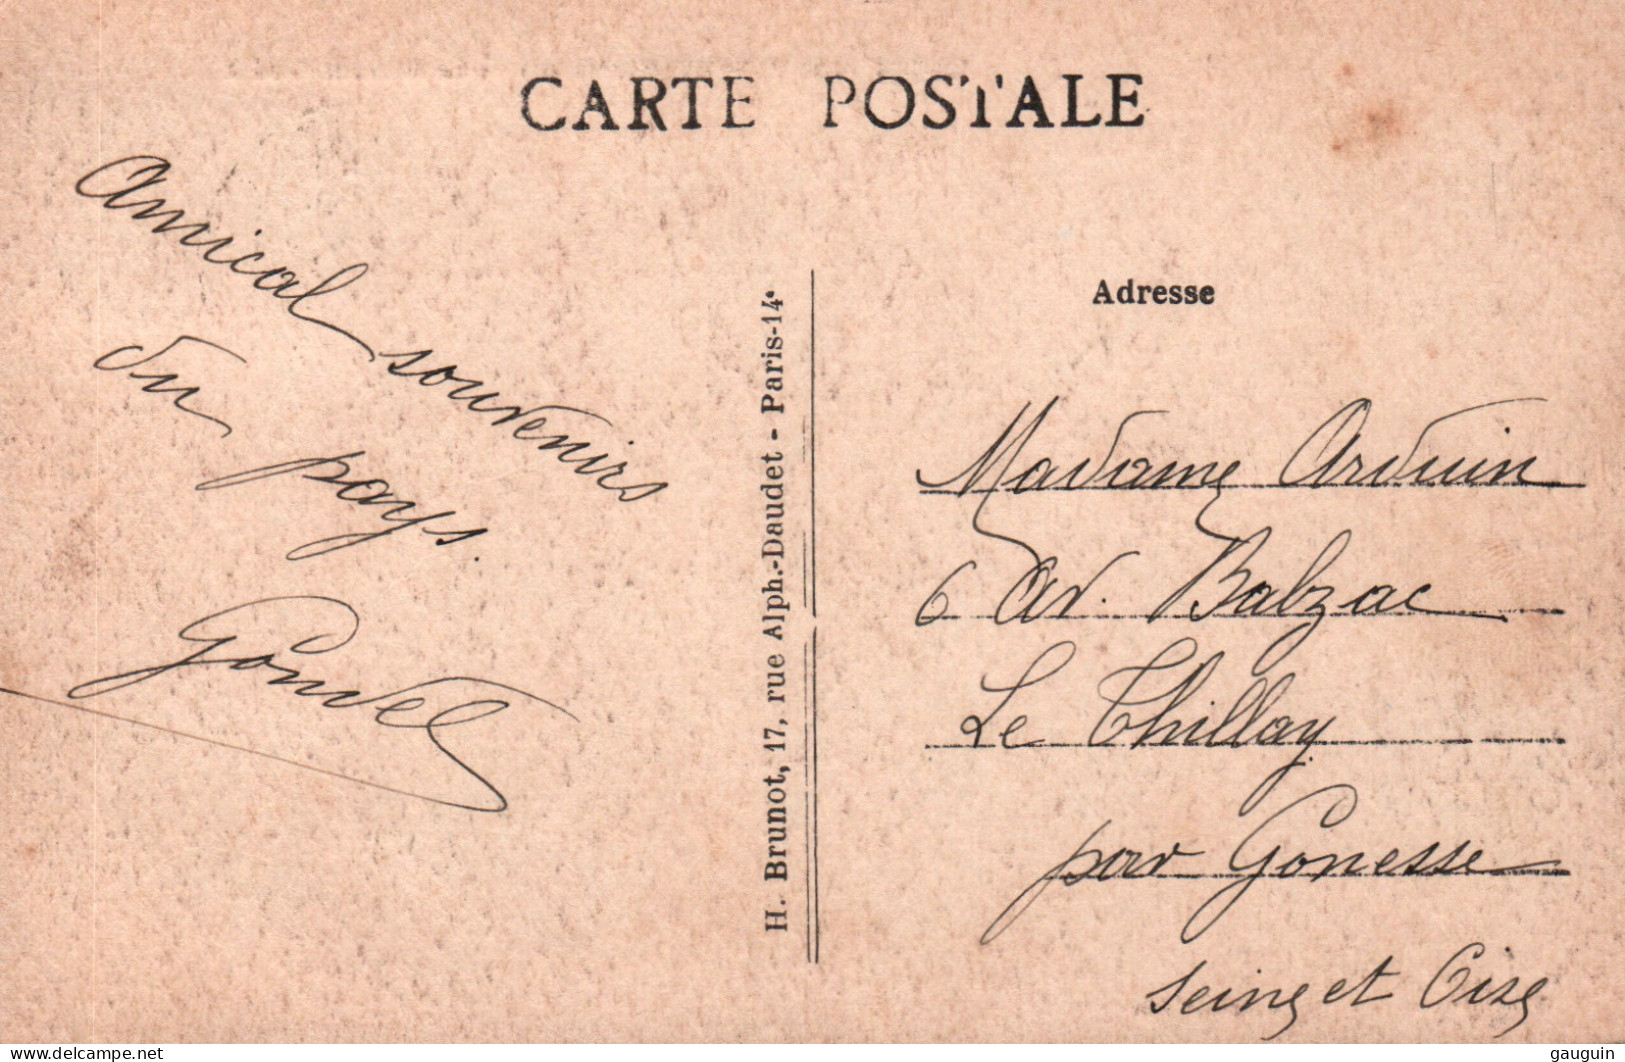 CARTE POSTALE
Amical souvenirs
du pays.
Gouvel
H. Brunot, 17, rue Alph.-Daudet - Paris-14e
Adresse
Madame Arduin
6 Av. Balzac
Le Thillay
par Gonesse
Seine et Oise
delcampe.net
gauguin